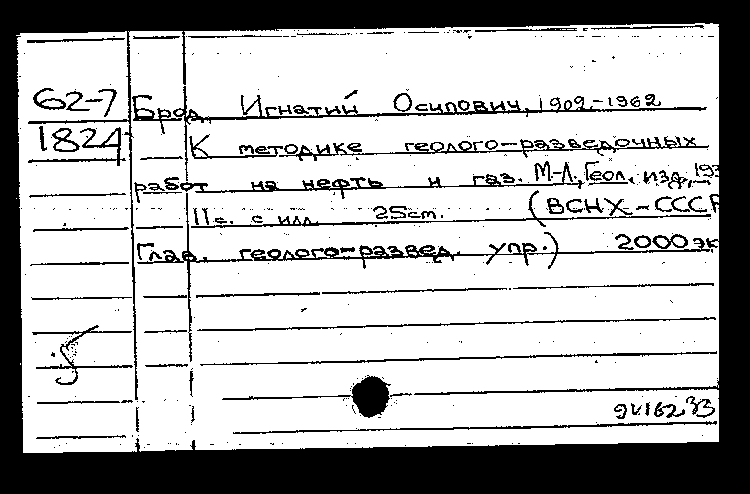 62-7 Брод, Игнатий Осипович, 1902-1962
1824 К методике геолого-разведочных
работ на нефть и газ. М-Л., Геол. изд., 193
11с. с илл. 25см. (ВСНХ-СССР
Глав. геолого-развед. упр.) 2000 эк
5